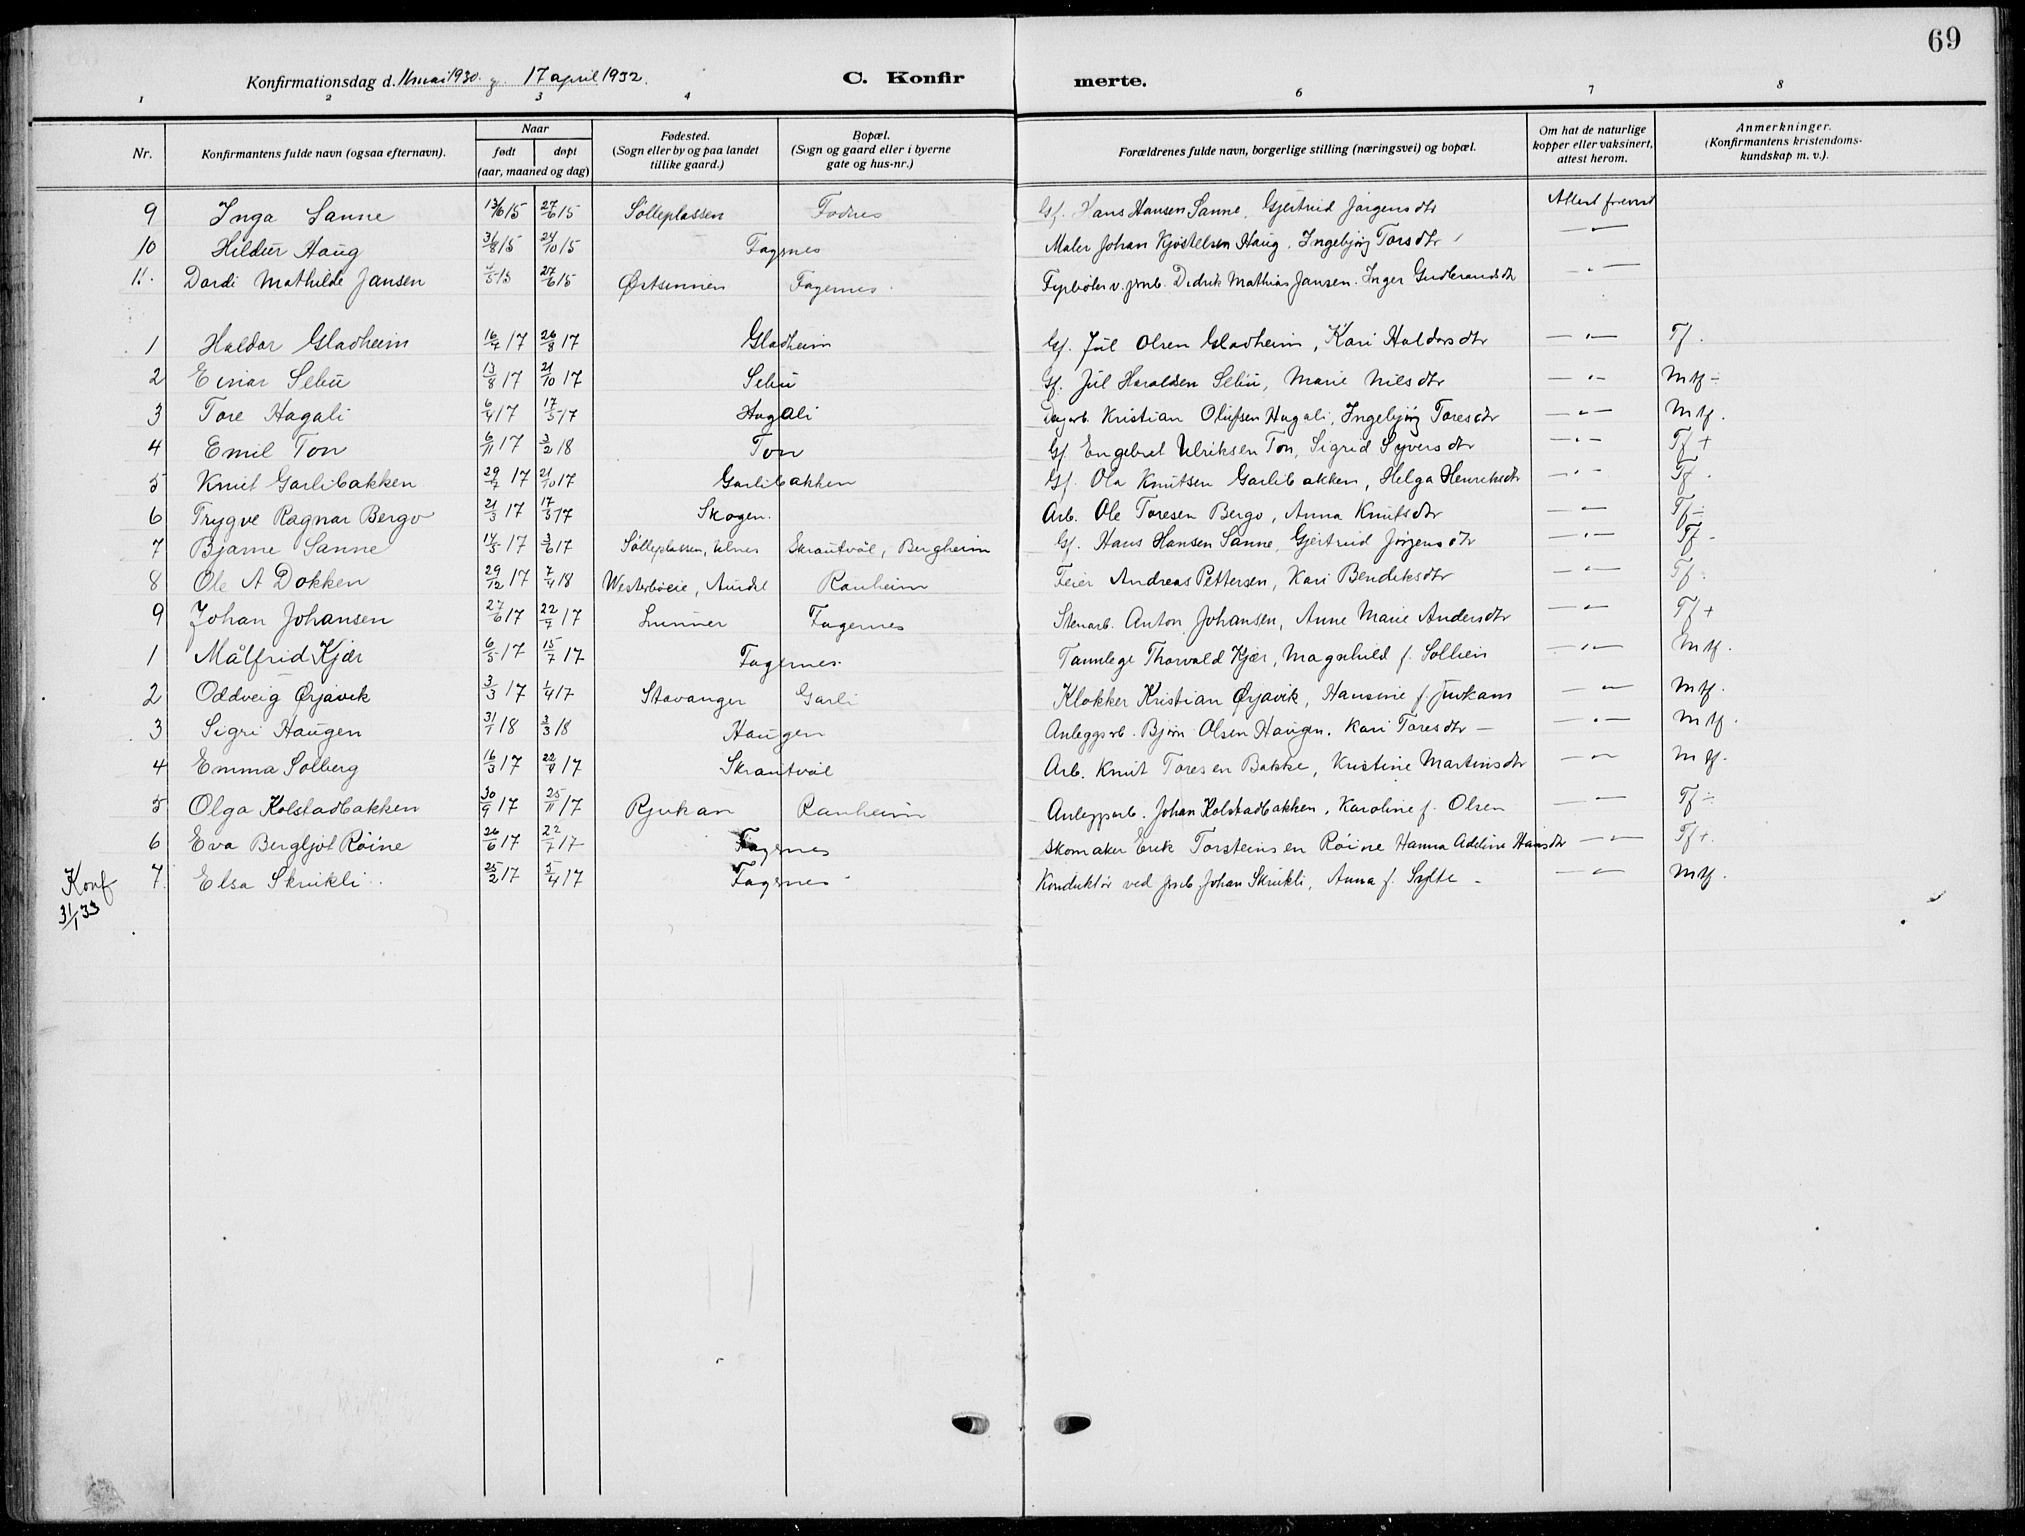 69
Konfirmationsdag d. 11 mai 1930. g. 17 april 1932. C. Konfirmerte.
1 2 3 4 6 7 8
Nr. Konfirmantens fulde navn (ogsaa efternavn). Naar født døpt (aar, maaned og dag) Fødested. (Sogn eller by og paa landet tillike gaard.) Bopæl. (Sogn og gaard eller i byerne gate og hus-nr.) Forældrenes fulde navn, borgerlige stilling (næringsvei) og bopæl. Om hat de naturlige kopper eller vaksinert, attest herom. Anmerkninger. (Konfirmantens kristendoms-kundskap m. v.).
9 Inga Sanne 13/6 15 27/6 15 Sølleplassen Fodnes Gf. Hans Hansen Sanne, Gjertrud Jørgensdtr Attest
10 Hildur Haug 31/8 15 24/10 15 Fagernes Maler Johan Kjøstelsen Haug, Ingebjørg Torsdtr — " —
11. Dordi Mathilde Jansen 27/6 15 Østsinnen Fagernes. Fyrbøter v. jrnb. Didrik Mathias Jansen. Inger Gudbrandsdtr — " —
1 Haldor Gladheim 16/7 17 26/8 17 Gladheim Gf. Jul Olsen Gladheim, Kari Haldorsdtr — " — Tf.
2 Einar Sebu 13/8 17 21/10 17 Sebu Gf. Jul Haraldsen Sebu, Marie Nilsdtr — " — Mtf ÷
3 Tore Hagali 6/4 17 17/5 17 Hagali Dagarb. Kristian Olufsen Hagali, Ingebjørg Toresdtr — " — Mtf.
4 Emil Ton 6/11 17 3/2 18 Ton Gf. Engebret Ulriksen Ton, Sigrid Syversdtr — " — Tf +
5 Knut Garlibakken 29/7 17 21/10 17 Garlibakken Gf. Ola Knutsen Garlibakken, Helga Henriksdtr — " — Tf.
6 Trygve Ragnar Bergo 21/3 17 17/5 17 Skogen. Arb. Ole Toresen Bergo, Anna Knutsdtr — " — Tf ÷
7 Bjarne Sanne 14/5 17 3/6 17 Sølleplassen, Ulnes Skrautvål, Bergheim Gf. Hans Hansen Sanne, Gjertrud Jørgensdtr — " — Tf -
8 Ole A Dokken 29/12 17 7/4 18 Westerbøeie, Aurdal Ranheim Feier Andreas Pettersen, Kari Bendiksdtr — " — Tf.
9 Johan Johansen 27/6 17 22/7 17 Lunner Fagernes Stenarb. Anton Johansen, Anne Marie Andersdtr — " — Tf +
1 Målfrid Kjær 6/5 17 15/7 17 Fagernes. Tannlege Thorvald Kjær, Magnhild f. Sollien — " — Mtf.
2 Oddveig Ørjavik 3/3 17 1/4 17 Stavanger Garli Klokker Kristian Ørjavik, Hansine f. Juvkam — " — Mtf.
3 Sigri Haugen 31/1 18 3/3 18 Haugen Anleggsarb. Bjørn Olsen Haugen, Kari Toresdtr — — " — Mtf.
4 Emma Solberg 16/3 17 22/4 17 Skrautvål Arb. Knut Toresen Bakke, Kristine Martinsdtr — " — Mtf.
5 Olga Kolstadbakken 30/9 17 25/11 17 Rjukan Ranheim Anleggsarb. Johan Kolstadbakken, Karoline f. Olsen — " — Tf ÷
6 Eva Bergljot Røine 26/6 17 22/7 17 Fagernes Skomaker Erik Torsteinsen Røine Hanna Adeline Hansdtr — " — Tf +.
7. Elsa Skrukli 25/2 17 5/4 17 Fagernes Konduktør ved jrnb. Johan Skrukli, Anna f. Syfte - — " — Mtf.
Konf
31/1 33